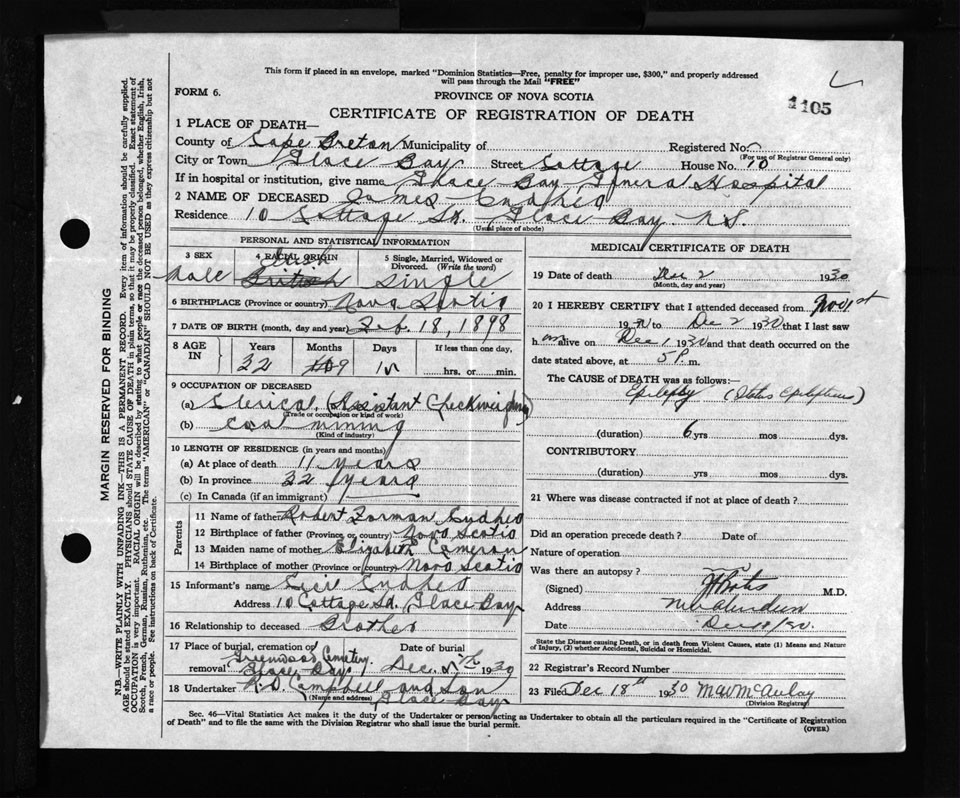 This form if placed in an envelope, marked "Dominion Statistics—Free, penalty for improper use, $300," and properly addressed
will pass through the Mail "FREE"
FORM 6.
PROVINCE OF NOVA SCOTIA
1105
CERTIFICATE OF REGISTRATION OF DEATH
1 PLACE OF DEATH—
County of Cape Breton Municipality of Registered No.
(For use of Registrar General only)
City or Town Glace Bay Street Cottage House No. 10
If in hospital or institution, give name Glace Bay General Hospital
2 NAME OF DECEASED James
Residence 10 Cottage St. Glace Bay N.S.
(Usual place of abode)
PERSONAL AND STATISTICAL INFORMATION
3 SEX Male
4 RACIAL ORIGIN British
5 Single, Married, Widowed or Divorced. (Write the word) Single
6 BIRTHPLACE (Province or country) Nova Scotia
7 DATE OF BIRTH (month, day and year) Feb. 18, 1898
8 AGE IN
Years Months Days If less than one day,
32 9 hrs. or min.
9 OCCUPATION OF DECEASED
(a) Clerical (Assistant Checkweighman)
(Trade or occupation or kind of work)
(b) Coal mining
(Kind of industry)
10 LENGTH OF RESIDENCE (in years and months)
(a) At place of death 11 years
(b) In province 32 years
(c) In Canada (if an immigrant)
Parents
11 Name of father Robert Forman
12 Birthplace of father (Province or country) Nova Scotia
13 Maiden name of mother Elizabeth Cameron
14 Birthplace of mother (Province or country) Nova Scotia
15 Informant's name Cecil
Address 10 Cottage St. Glace Bay
16 Relationship to deceased Brother
17 Place of burial, cremation or removal Greenwood Cemetery. Glace Bay
Date of burial Dec. 1930
18 Undertaker A.D. Campbell and Son
(Name and address) Glace Bay
MEDICAL CERTIFICATE OF DEATH
19 Date of death Dec 2 1930
(Month, day and year)
20 I HEREBY CERTIFY that I attended deceased from Nov 1st
1930 to Dec 2 1930 that I last saw
h im alive on Dec 1 1930 and that death occurred on the
date stated above, at 5 P. m.
The CAUSE OF DEATH was as follows:
Epilepsy (Status Epilepticus)
(duration) 6 yrs mos dys.
CONTRIBUTORY
(duration) yrs mos dys.
21 Where was disease contracted if not at place of death?
Did an operation precede death? Date of
Nature of operation
Was there an autopsy?
(Signed) M.D.
Address New Aberdeen
Date Dec 18/30.
State the Disease causing Death, or in death from Violent Causes, state (1) Means and
Nature of Injury, (2) whether Accidental, Suicidal or Homicidal.
22 Registrar's Record Number
23 Filed Dec 18th 1930 McAulay
(Division Registrar)
Sec. 46—Vital Statistics Act makes it the duty of the Undertaker or person acting as Undertaker to obtain all the particulars required in the "Certificate of Registration
of Death" and to file the same with the Division Registrar who shall issue the burial permit.
(OVER)
MARGIN RESERVED FOR BINDING
N.B.—WRITE PLAINLY WITH UNFADING INK—THIS IS A PERMANENT RECORD. Every item of information should be carefully supplied.
AGE should be stated EXACTLY. PHYSICIANS should STATE CAUSE OF DEATH in plain terms, so that it may be properly classified. Exact statement of
OCCUPATION is very important. RACIAL ORIGIN will be described by stating to what people or race the deceased person belonged, whether English, Irish,
Scotch, French, German, Russian, Ruthenian, etc. The terms "AMERICAN" or "CANADIAN" SHOULD NOT BE USED as they express citizenship but not
a race or people. See instructions on back of Certificate.